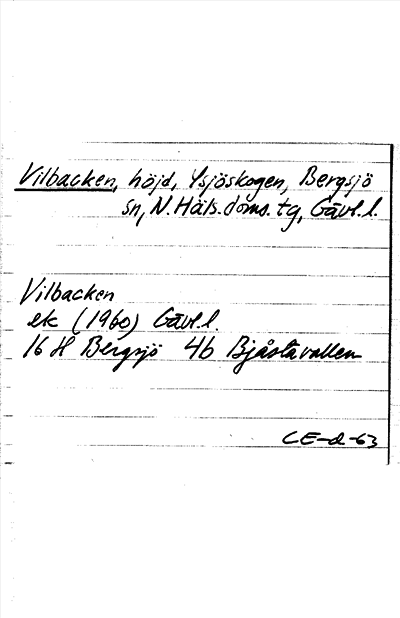 Vilbacken, höjd, Ysjöskogen, Bergsjö
sn, N.Häls.doms.tg, Gävl.l.
Vilbacken
ek (1960) Gävl.l.
16 H Bergsjö 4b Bjåstavallen
CE-d-63